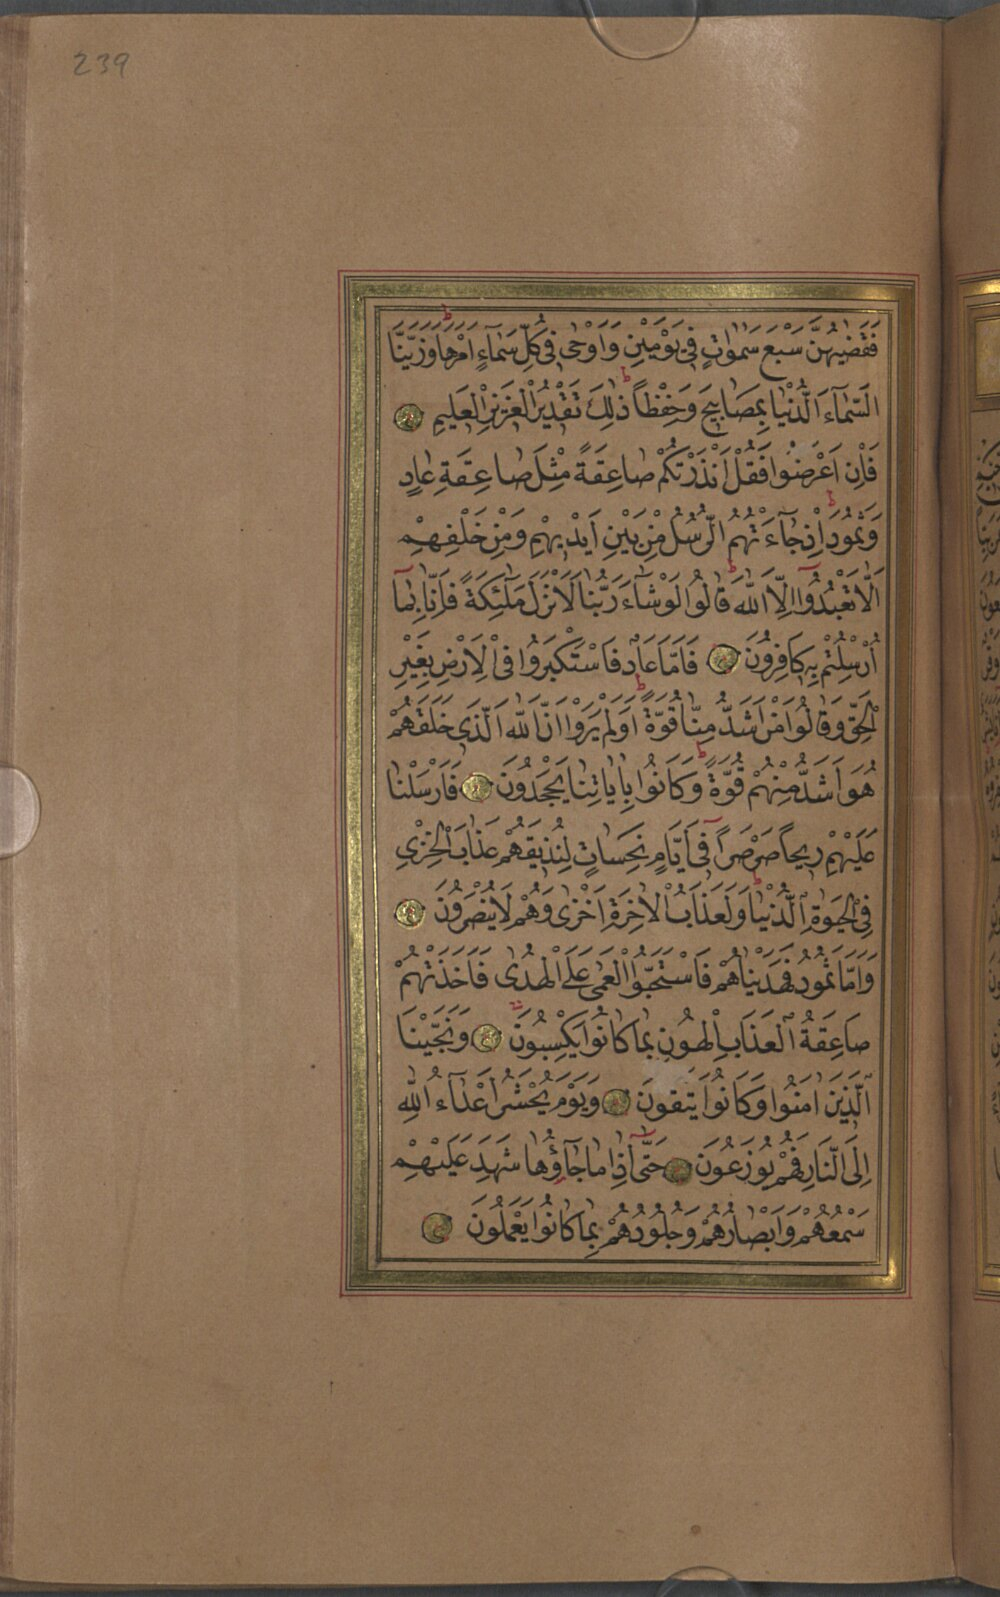 239
فَقَضٰيهُنَّ سَبْعَ سَمٰوَاتٍ فِي يَوْمَيْنِ وَاَوْحٰى فِي كُلِّ سَمَآءٍ اَمْرَهَا وَزَيَّنَّا
السَّمَآءَ الدُّنْيَا بِمَصَابِيحَ وَحِفْظاً ذٰلِكَ تَقْدِيرُ الْعَزِيزِ الْعَلِيمِ
فَاِنْ اَعْرَضُوا فَقُلْ اَنْذَرْتُكُمْ صَاعِقَةً مِثْلَ صَاعِقَةِ عَادٍ
وَثَمُودَ اِذْ جَآءَتْهُمُ الرُّسُلُ مِنْ بَيْنِ اَيْدِيهِمْ وَمِنْ خَلْفِهِمْ
اَلَّا تَعْبُدُوٓا اِلَّا اللّٰهَ قَالُوا لَوْ شَآءَ رَبُّنَا لَاَنْزَلَ مَلٰٓئِكَةً فَاِنَّا بِمَآ
اُرْسِلْتُمْ بِهِ كَافِرُونَ فَاَمَّا عَادٌ فَاسْتَكْبَرُوا فِي الْاَرْضِ بِغَيْرِ
الْحَقِّ وَقَالُوا مَنْ اَشَدُّ مِنَّا قُوَّةً اَوَلَمْ يَرَوْا اَنَّ اللّٰهَ الَّذِي خَلَقَهُمْ
هُوَ اَشَدُّ مِنْهُمْ قُوَّةً وَكَانُوا بِاٰيَاتِنَا يَجْحَدُونَ فَاَرْسَلْنَا
عَلَيْهِمْ رِيحاً صَرْصَراً فِٓي اَيَّامٍ نَحِسَاتٍ لِنُذِيقَهُمْ عَذَابَ الْخِزْيِ
فِي الْحَيٰوةِ الدُّنْيَا وَلَعَذَابُ الْاٰخِرَةِ اَخْزٰى وَهُمْ لَا يُنْصَرُونَ
وَاَمَّا ثَمُودُ فَهَدَيْنَاهُمْ فَاسْتَحَبُّوا الْعَمٰى عَلَى الْهُدٰى فَاَخَذَتْهُمْ
صَاعِقَةُ الْعَذَابِ الْهُونِ بِمَا كَانُوا يَكْسِبُونَ وَنَجَّيْنَا
الَّذِينَ اٰمَنُوا وَكَانُوا يَتَّقُونَ وَيَوْمَ يُحْشَرُ اَعْدَآءُ اللّٰهِ
اِلَى النَّارِ فَهُمْ يُوزَعُونَ حَتّٰٓى اِذَا مَا جَآؤُهَا شَهِدَ عَلَيْهِمْ
سَمْعُهُمْ وَاَبْصَارُهُمْ وَجُلُودُهُمْ بِمَا كَانُوا يَعْمَلُونَ